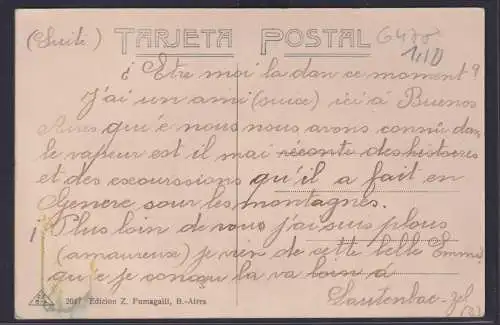 (Suite)
TARJETA POSTAL
1,10
¿ Etre moi la dan ce moment ?
J'ai un ami (suise) ici á Buenos
Aires qu'é nous nous avons connú dan
le vapeur est il mai réconte des histoires
et des escourssions qu'il a fait en
Genere sour les montagnes.
¡ Plus loin de vous j'ai suis plous
(amoureux) je vien de cette belle Emma
que je conçu la va loin á
2047 Edicion Z. Fumagalli, B.-Aires
Lautenbac-zel